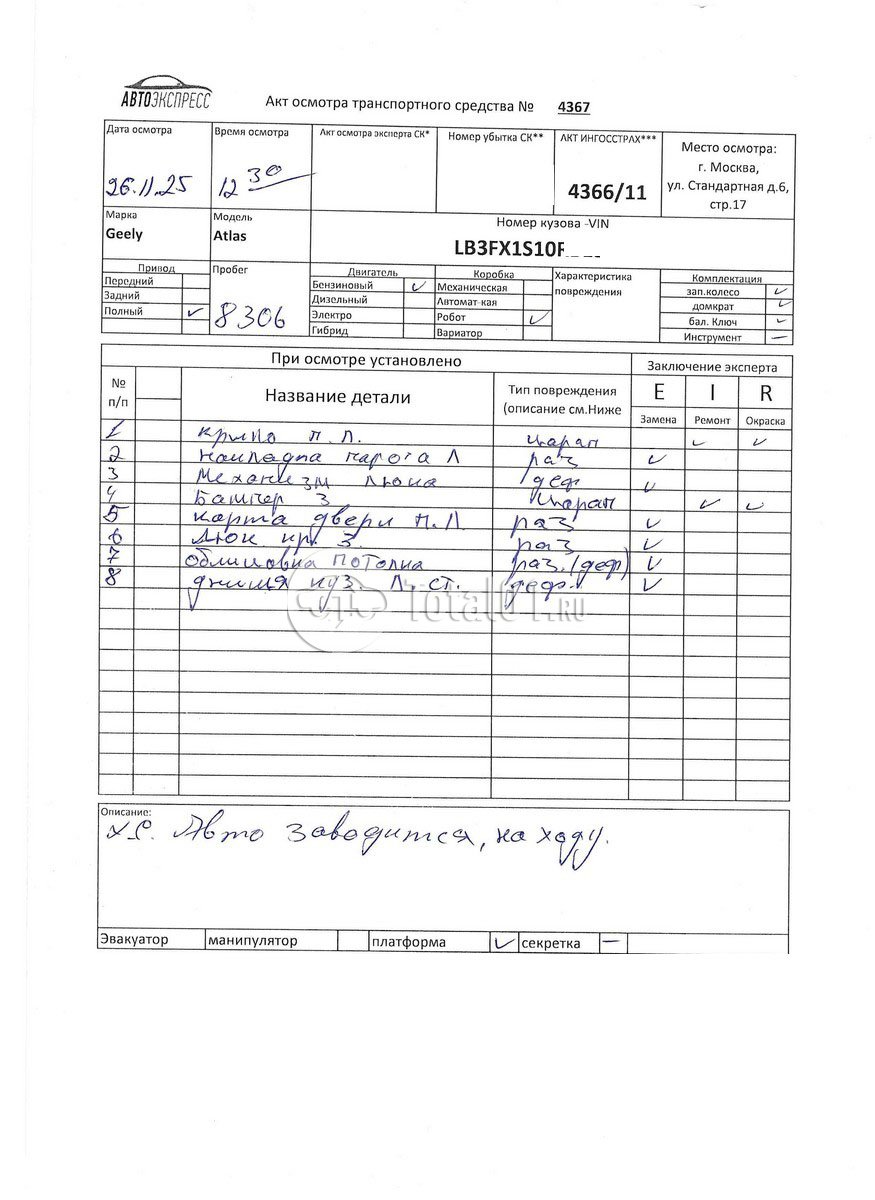 АВТОЭКСПРЕСС
Акт осмотра транспортного средства № 4367
Дата осмотра
Время осмотра
Акт осмотра эксперта СК*
Номер убытка СК**
АКТ ИНГОССТРАХ***
Место осмотра:
г. Москва,
ул. Стандартная д.6,
стр.17
26.11.25
12 30
4366/11
Марка
Модель
Номер кузова -VIN
Geely
Atlas
LB3FX1S10F
Привод
Передний
Задний
Полный ✓
Пробег
8306
Двигатель
Бензиновый ✓
Дизельный
Электро
Гибрид
Коробка
Механическая
Автомат-кая
Робот ✓
Вариатор
Характеристика
повреждения
Комплектация
зап.колесо ✓
домкрат ✓
бал. Ключ ✓
Инструмент —
При осмотре установлено
Заключение эксперта
№
п/п
Название детали
Тип повреждения
(описание см.Ниже
E I R
Замена Ремонт Окраска
1 крыло п. л. царап ✓ ✓
2 накладка порога Л раз ✓
3 Механизм люка деф ✓
4 Бампер З царап ✓ ✓
5 карта двери п.л раз ✓
6 Люк кр. З. раз ✓
7 облицовка потолка раз. (деф) ✓
8 днища куз. Л. ст. деф. ✓
Total01.RU
Описание:
Х.С. Авто заводится, на ходу.
Эвакуатор манипулятор платформа ✓ секретка —